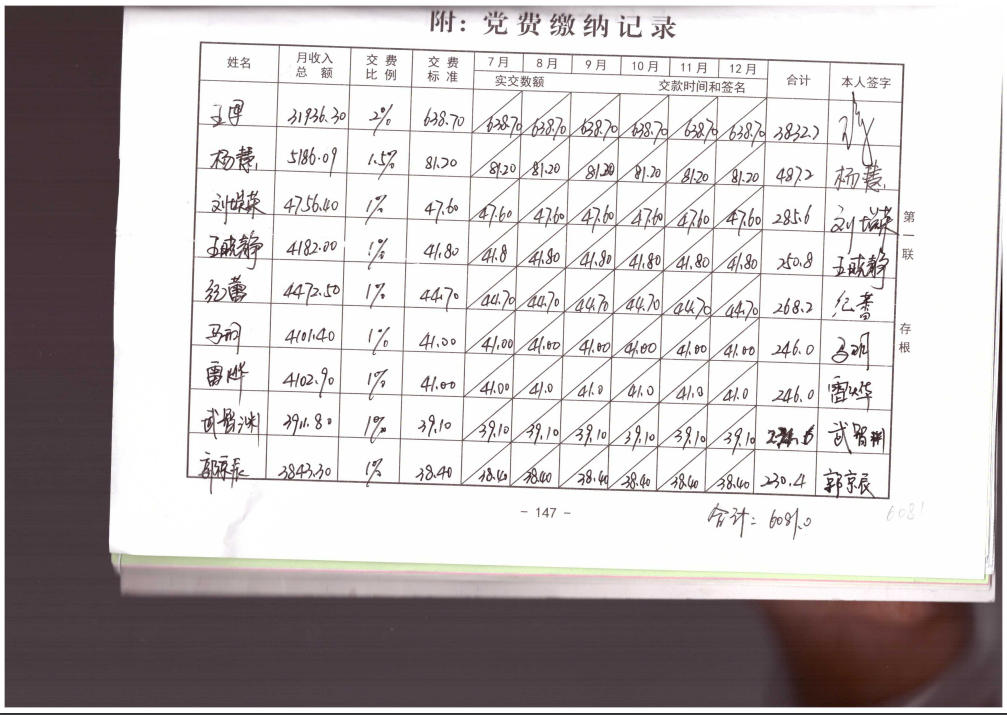 附：党费缴纳记录
姓名 月收入总额 交费比例 交费标准 7月 8月 9月 10月 11月 12月 合计 本人签字
实交数额 交款时间和签名
31936.30 2% 638.70 638.70 638.70 638.70 638.70 638.70 638.70 3832.2
杨慧 5186.09 1.5% 81.20 81.20 81.20 81.20 81.20 81.20 81.20 487.2 杨慧
4756.40 1% 47.60 47.60 47.60 47.60 47.60 47.60 47.60 285.6
第一联
王晓静 4182.00 1% 41.80 41.8 41.80 41.80 41.80 41.80 41.80 250.8 王晓静
纪蕾 4472.50 1% 44.70 44.70 44.70 44.70 44.70 44.70 44.70 268.2 纪蕾
存根
马玥 4101.40 1% 41.00 41.00 41.00 41.00 41.00 41.00 41.00 246.0 马玥
雷烨 4102.90 1% 41.00 41.00 41.0 41.0 41.0 41.0 41.0 246.0 雷烨
武智渊 3911.80 1% 39.10 39.10 39.10 39.10 39.10 39.10 39.10 武智渊
郭京辰 3843.30 1% 38.40 38.40 38.40 38.40 38.40 38.40 38.40 230.4 郭京辰
- 147 -
合计：6081.0
6081